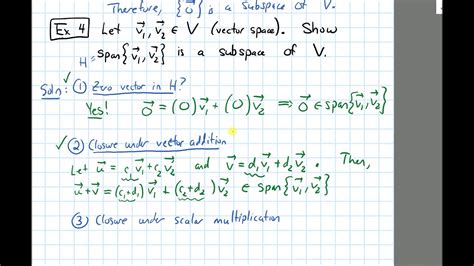 Therefore, {0⃗} is a subspace of V.
Ex 4 Let v⃗₁, v⃗₂ ∈ V (vector space). Show
H = span{v⃗₁, v⃗₂} is a subspace of V.
Soln: ✓ ① Zero vector in H?
Yes! 0⃗ = (0)v⃗₁ + (0)v⃗₂ ⟹ 0⃗ ∈ span{v⃗₁, v⃗₂}
✓ ② Closure under vector addition
Let u⃗ = c₁v⃗₁ + c₂v⃗₂ and v⃗ = d₁v⃗₁ + d₂v⃗₂. Then,
u⃗ + v⃗ = (c₁+d₁)v⃗₁ + (c₂+d₂)v⃗₂ ∈ span{v⃗₁, v⃗₂}
③ Closure under scalar multiplication